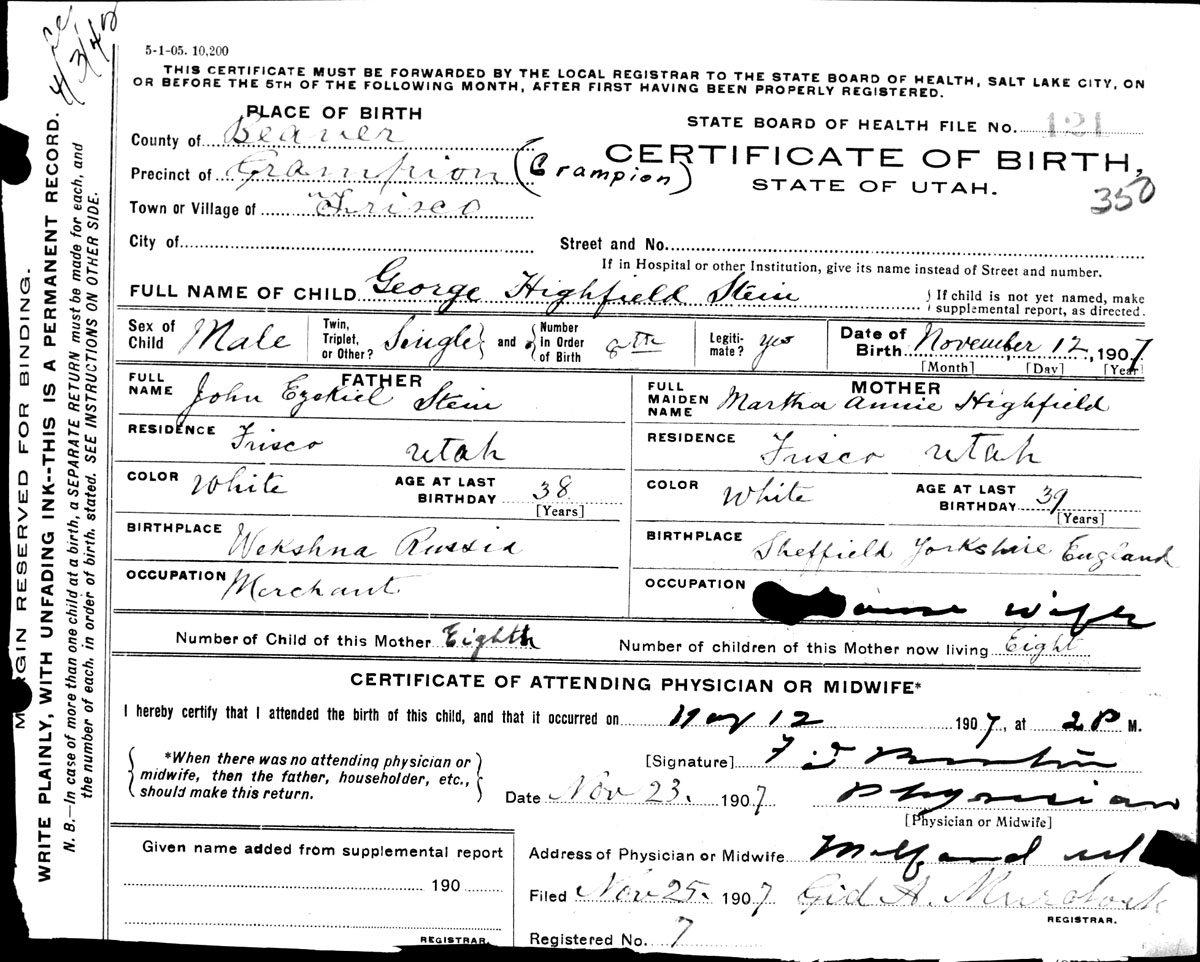 4/3/42
5-1-05. 10,200
THIS CERTIFICATE MUST BE FORWARDED BY THE LOCAL REGISTRAR TO THE STATE BOARD OF HEALTH, SALT LAKE CITY, ON
OR BEFORE THE 5TH OF THE FOLLOWING MONTH, AFTER FIRST HAVING BEEN PROPERLY REGISTERED.
PLACE OF BIRTH
County of Beaver
STATE BOARD OF HEALTH FILE NO. 121
Precinct of Grampion (Grampion)
CERTIFICATE OF BIRTH,
STATE OF UTAH.
350
Town or Village of Frisco
City of
Street and No.
If in Hospital or other Institution, give its name instead of Street and number.
FULL NAME OF CHILD George Highfield Stein
If child is not yet named, make
supplemental report, as directed.
Sex of Child Male
Twin, Triplet, or Other? Single and Number in Order of Birth 8th
Legiti-mate? yes
Date of Birth November 12, 1907
[Month] [Day] [Year]
FATHER
FULL NAME John Ezekiel Stein
MOTHER
FULL MAIDEN NAME Martha Annie Highfield
RESIDENCE Frisco Utah
RESIDENCE Frisco Utah
COLOR White AGE AT LAST BIRTHDAY 38 [Years]
COLOR White AGE AT LAST BIRTHDAY 39 [Years]
BIRTHPLACE Wekshna Russia
BIRTHPLACE Sheffield Yorkshire England
OCCUPATION Merchant
OCCUPATION House wife
Number of Child of this Mother Eighth
Number of children of this Mother now living Eight
CERTIFICATE OF ATTENDING PHYSICIAN OR MIDWIFE*
I hereby certify that I attended the birth of this child, and that it occurred on Nov 12 1907, at 2 P M.
*When there was no attending physician or
midwife, then the father, householder, etc.,
should make this return.
[Signature]
Date Nov 23. 1907 Physician
[Physician or Midwife]
Given name added from supplemental report
190
REGISTRAR.
Address of Physician or Midwife Milford
Filed Nov 25. 1907 Gid A. Murdock
REGISTRAR.
Registered No. 7
MARGIN RESERVED FOR BINDING.
WRITE PLAINLY, WITH UNFADING INK--THIS IS A PERMANENT RECORD.
N. B.—In case of more than one child at a birth, a SEPARATE RETURN must be made for each, and
the number of each, in order of birth, stated. SEE INSTRUCTIONS ON OTHER SIDE.